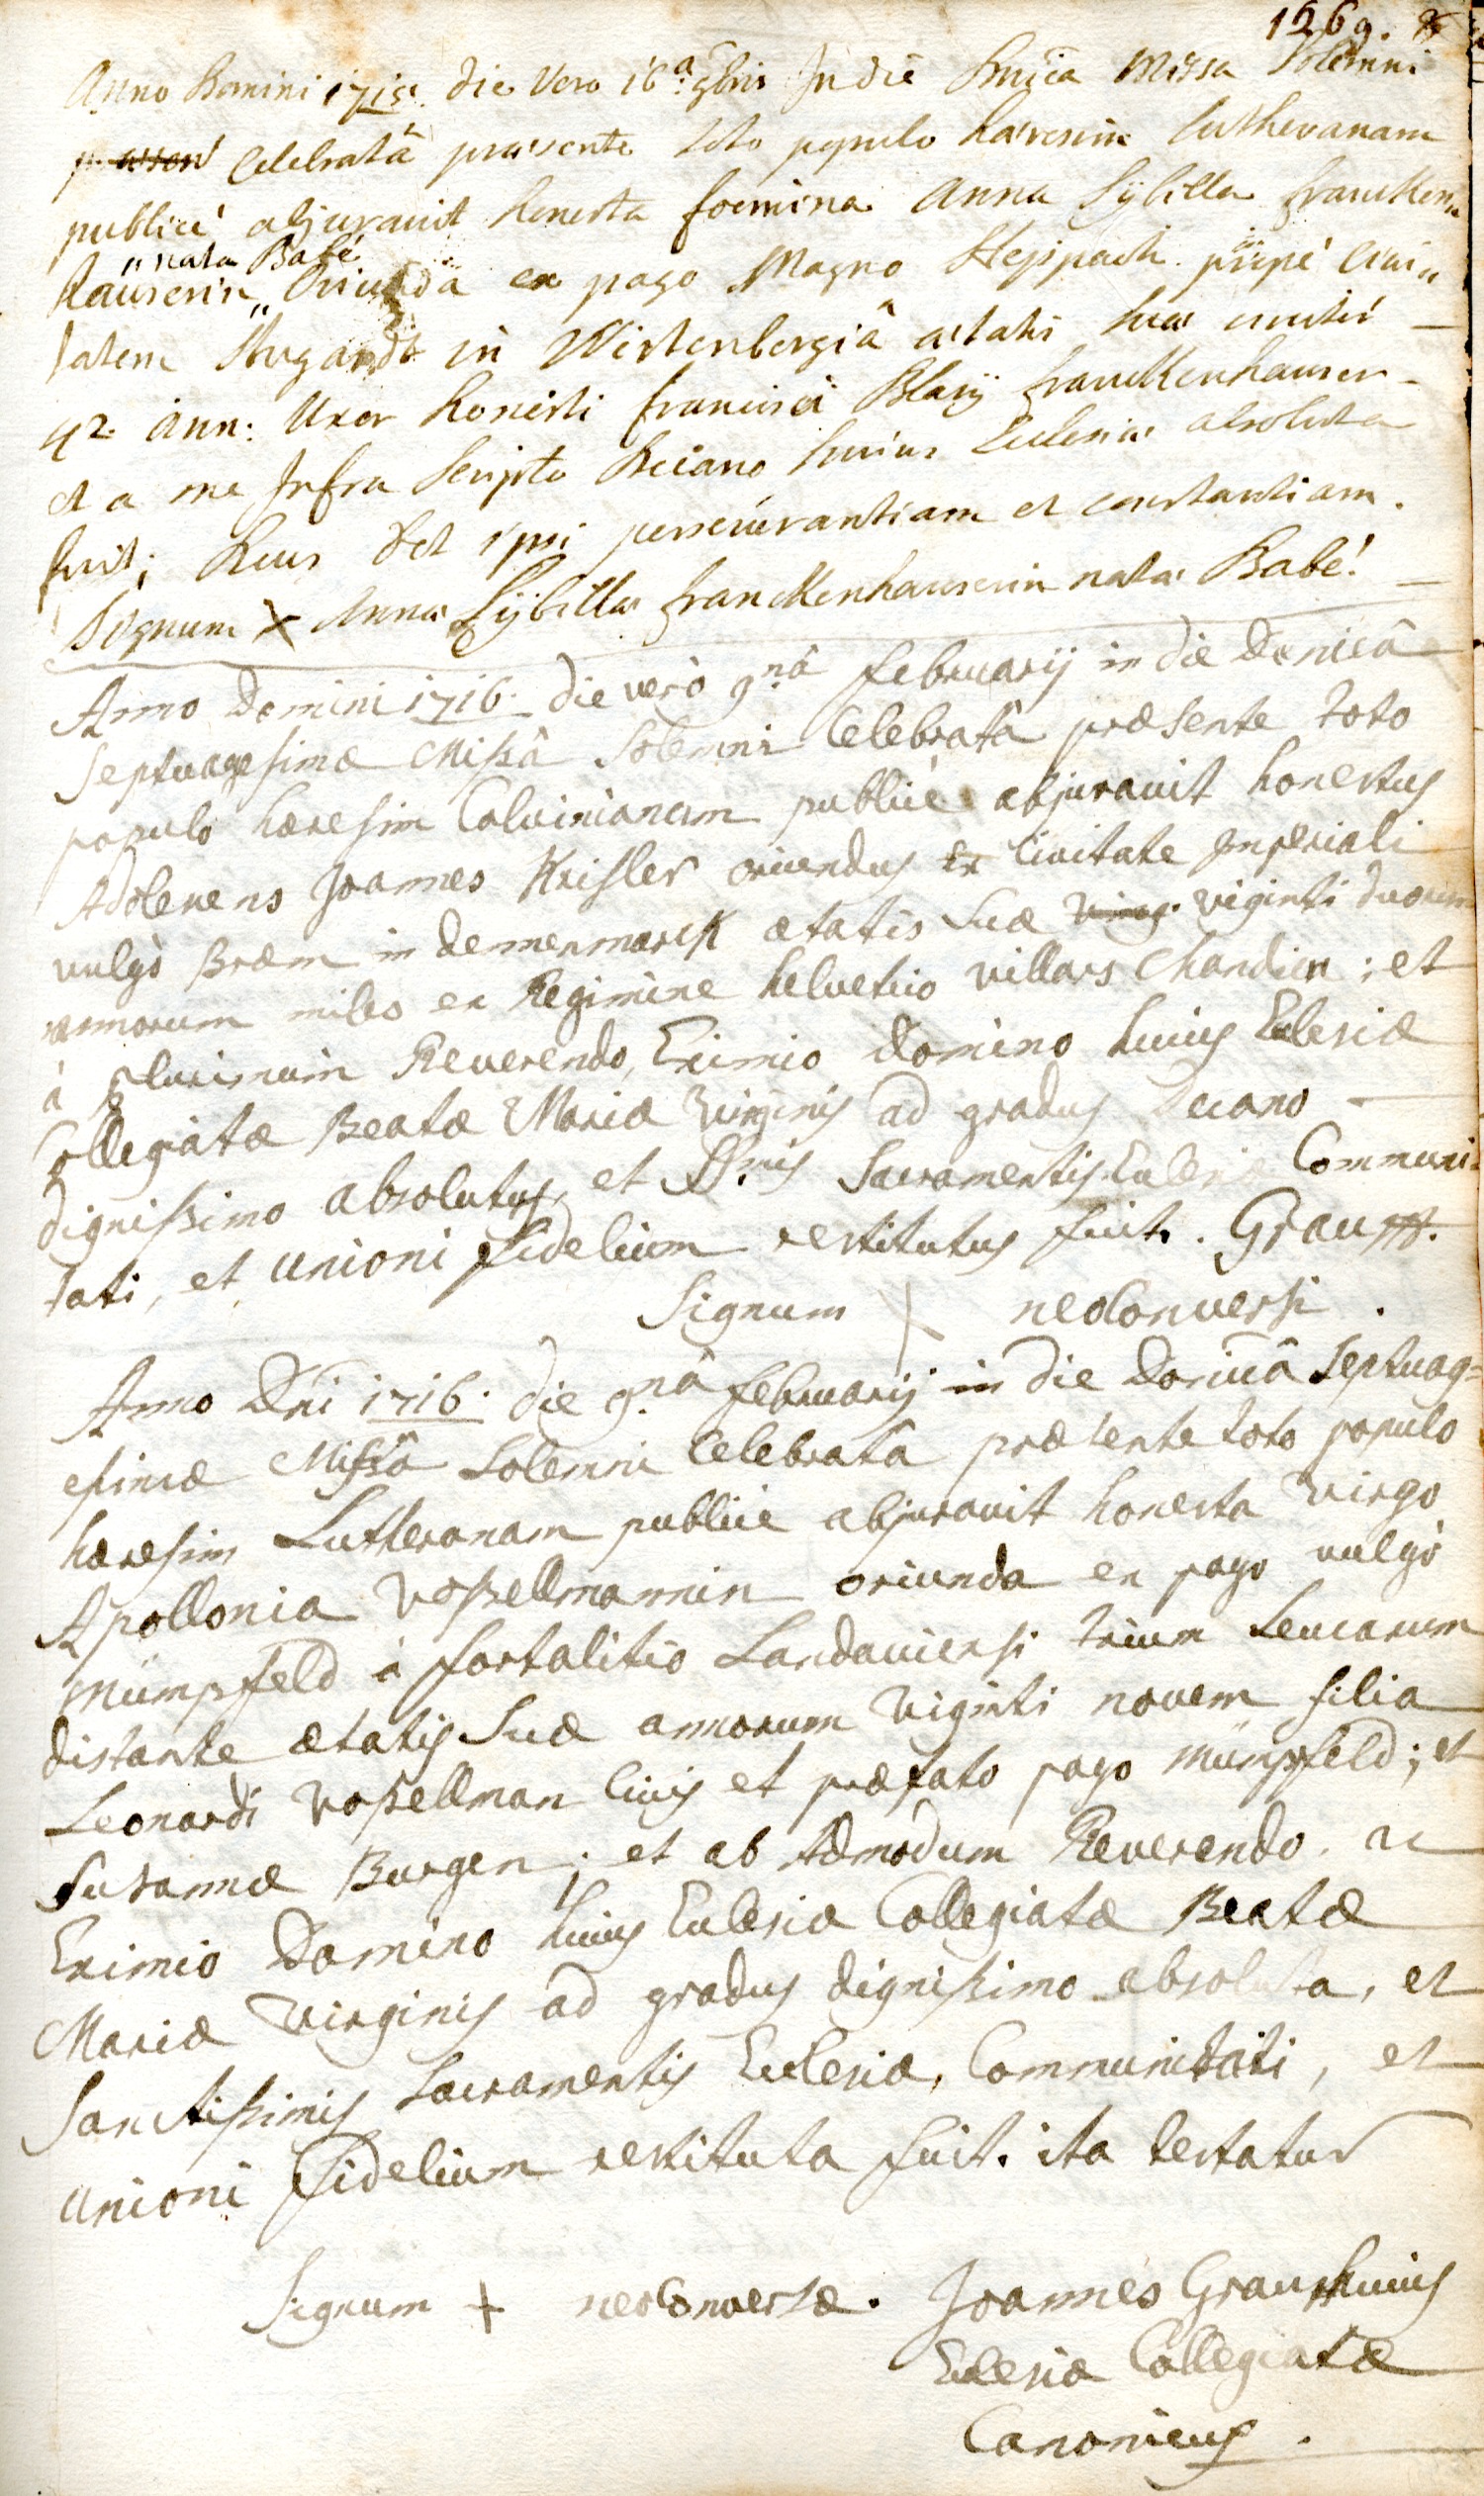 1269.
Anno Domini 1715. die Vero 16.a 9bris In die Dnicâ Missa Solemni
celebratâ præsente toto populo hæresim lutheranam
publicé abjurauit honesta foemina Anna Sÿbilla francken„
„nata Babé
hauserin„ Oriunda ex pago Magno Heppach propé Ciui„
tatem Stugardt in Wirtenbergiâ ætatis suæ circiter
42. Ann: Uxor honesti francisci Blasÿ franckenhauser
et a me Infra Scripto Decano huius Ecclesiæ absoluta
fuit; Deus det ipsi perseuerantiam et constantiam.
Signum X Annæ Sÿbillæ franckenhauserin natæ Babé!
Anno Domini 1716. die verò 9.nâ februarij in die Dnicâ
Septuagesimæ Missâ Solemni Celebratâ præsente toto
populo hæresim Caluinianam publicè abjurauit honestus
Adolenens Joannes Krisler oriundus ex Ciuitate Imperiali
vulgò Bræm in dennenmarck ætatis suæ viginti duorum
annorum miles ex Regimine helvetico villars Chandieu; et
à plurimum Reverendo, Eximio Domino huius Eclesiæ
Collegiatæ Beatæ Mariæ Virginis ad gradus Decano
dignissimo absolutus, et SS.mis Sacramentis Eclesiæ Communi
tati, et unioni fidelium restitutus fuit. Grauss.
Signum X neoConversi.
Anno Dni 1716. die 9.nâ februarij in die Dnicâ Septuag-
esimæ Missâ Solemni Celebratâ præsente toto populo
hæresim Lutheranam publicè abjurauit honesta Virgo
Apollonia Vossellmannin oriunda ex pago vulgò
Mümpsfeld à fortalitio Landauiensi trium leucarum
distante ætatis suæ annorum viginti novem filia
Leonardi Vossellman Ciuis et præfato pago Mümpsfeld; et
Susannæ Burgen; et ab Admodum Reverendo, ac
Eximio Domino huius Eclesiæ Collegiatæ Beatæ
Mariæ Virginis ad gradus dignissimo absoluta, et
Sanctissimis Sacramentis Eclesiæ, Communitati, et
unioni fidelium restituta fuit. ita testatur
Signum + neoConversæ. Joannes Grauss huius
Eclesiæ Collegiatæ
Canonicus.